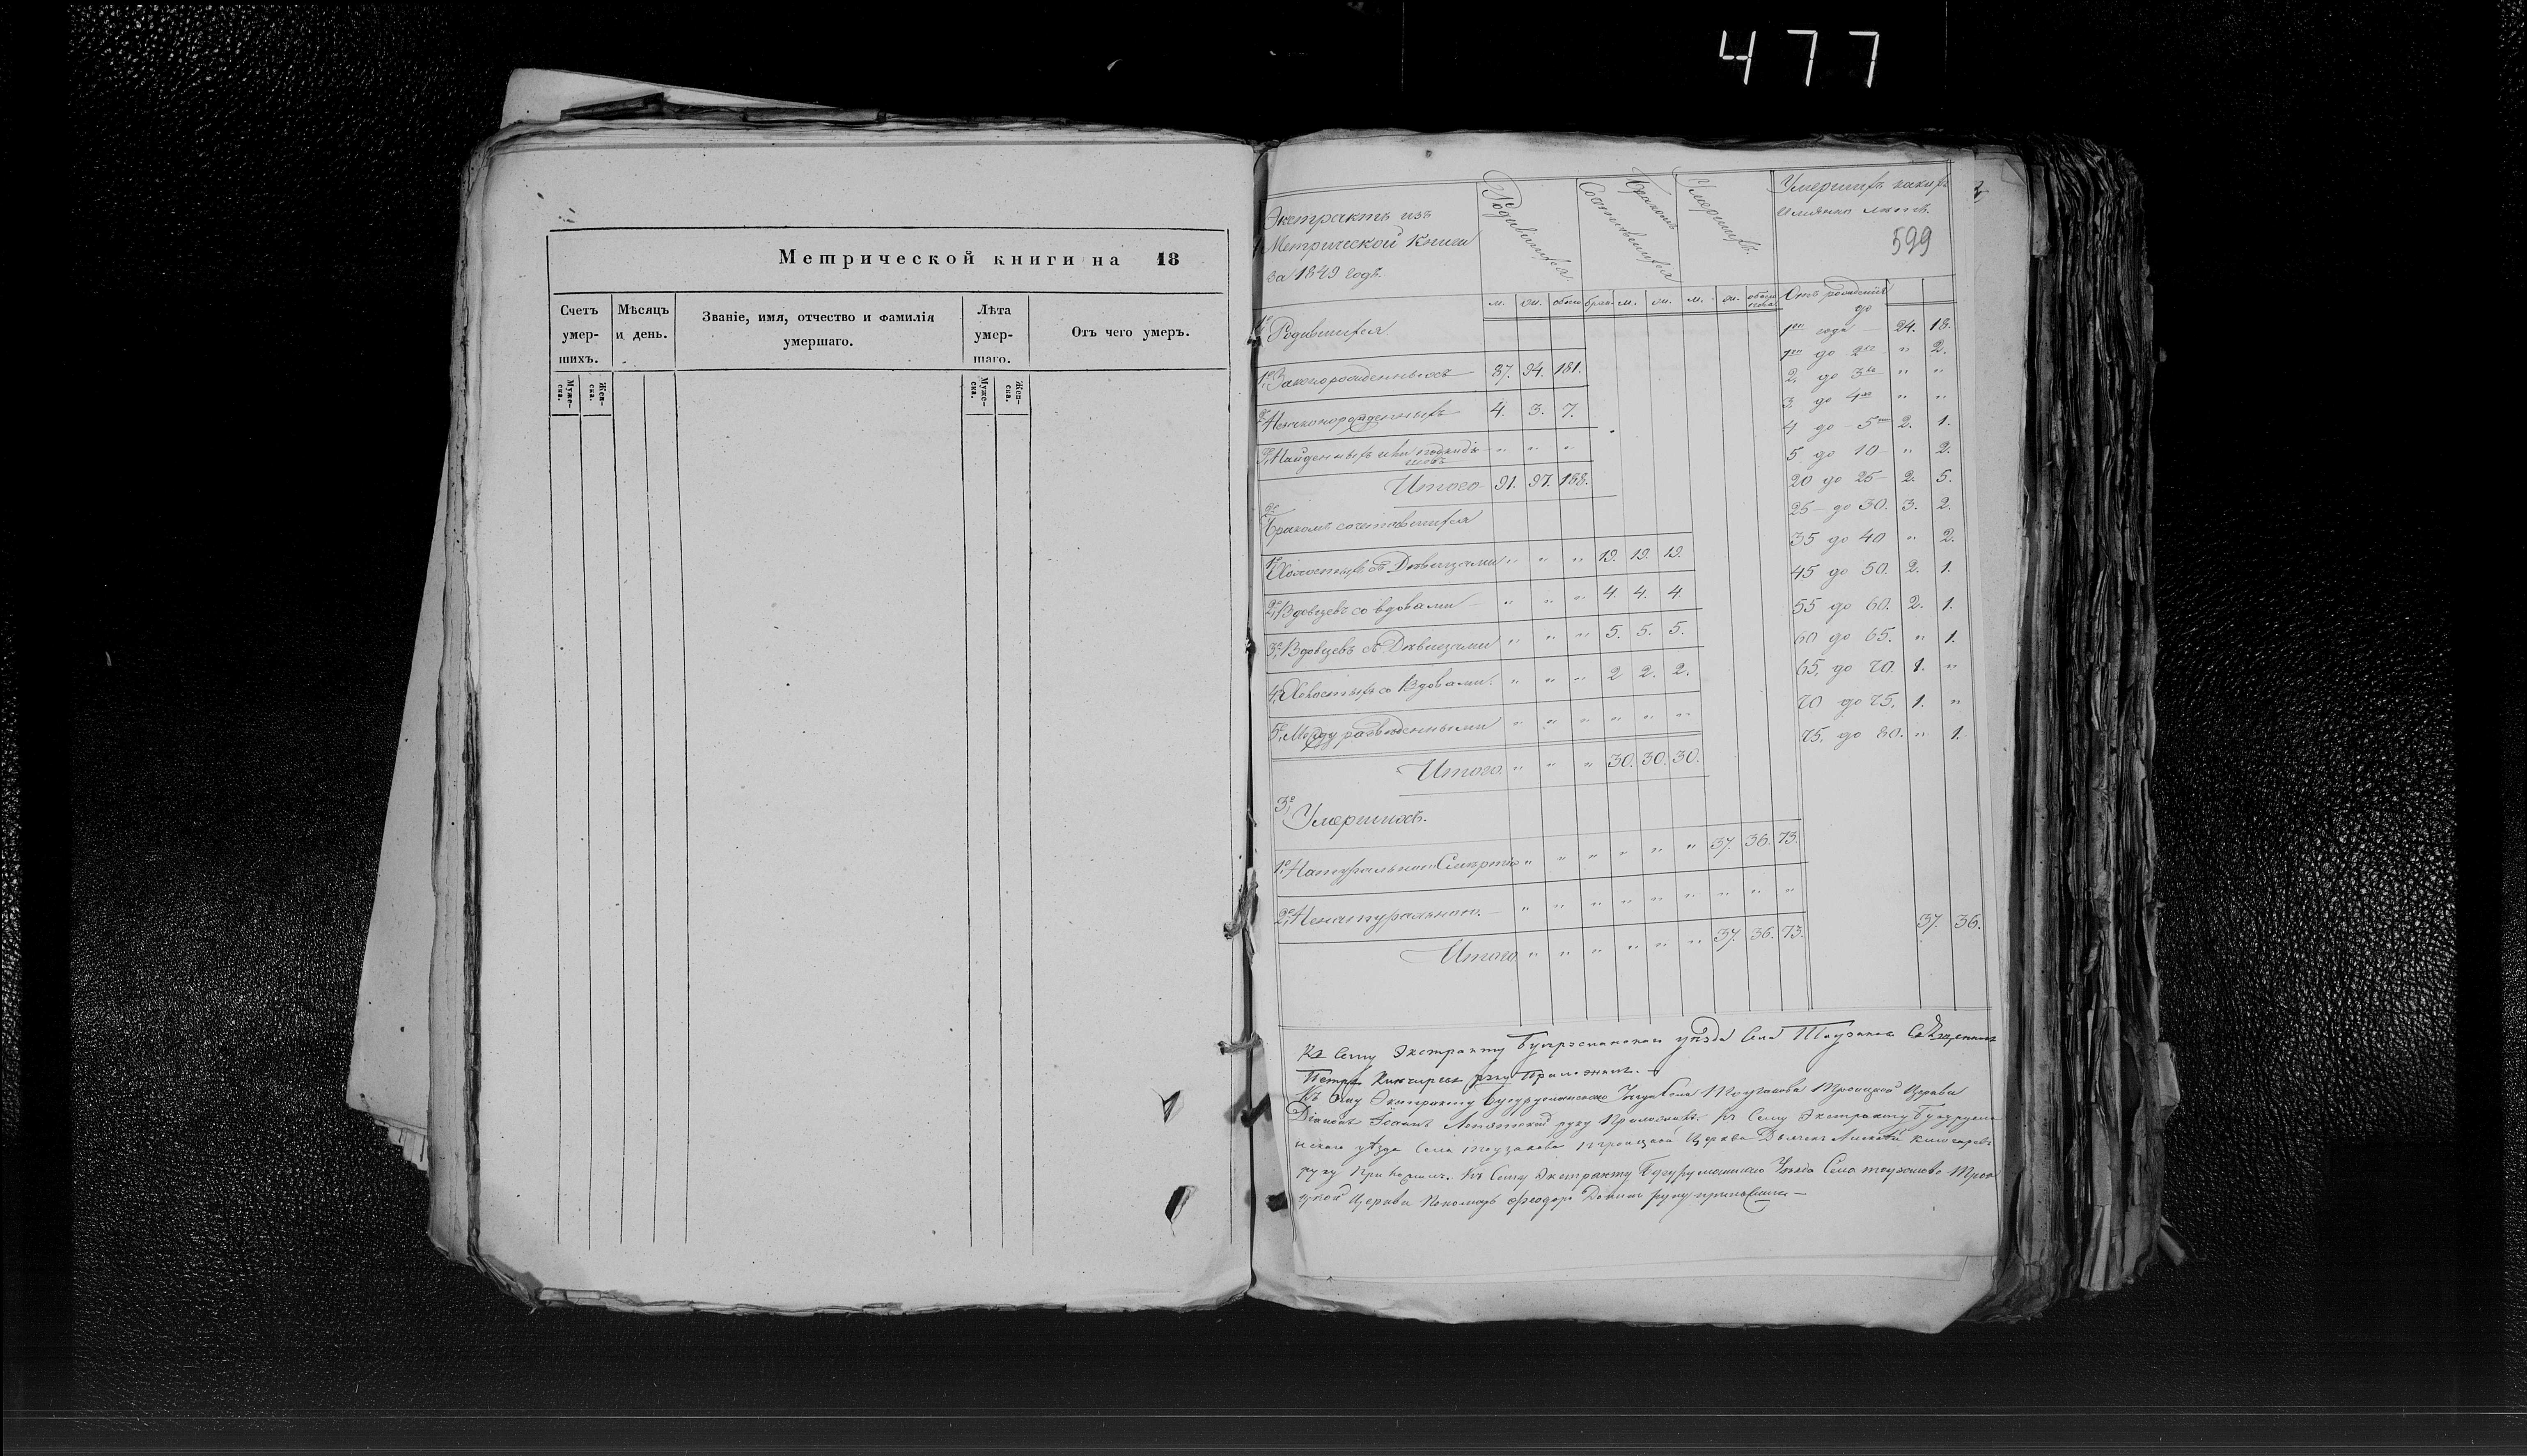 477
Метрической книги на 18
Счетъ умер- шихъ.
Мѣсяцъ и день.
Званіе, имя, отчество и фамилія умершаго.
Лѣта умер- шаго.
Отъ чего умеръ.
Муже- ска.
Жен- ска.
Муже- ска.
Жен- ска.
Экстрактъ изъ
Метрической книги
за 1849 годъ.
Родившихся
Сочетавшихся
Бракомъ
Умершихъ
Умершихъ
599
м. ж. обоего брак. м. ж. м. ж. обоего пола
Отъ рожденія до
1го года — 24. 18.
1го до 2хъ " 2.
2, до 3хъ " "
3, до 4хъ " "
4 до 5ти 2. 1.
5 до 10 " 2.
20 до 25 2. 5.
25 до 30. 3. 2.
35 до 40 " 2.
45 до 50. 2. 1.
55 до 60. 2. 1.
60 до 65. " 1.
65, до 70 1. "
70 до 75, 1. "
75, до 80. " 1.
37. 36.
1е Родившихся
1е Законорожденныхъ 87. 94. 181.
2е Незаконорожденныхъ 4. 3. 7.
3е Найденныхъ или подкиды-
шовъ " " "
Итого 91. 97. 188.
2е
Бракомъ сочетавшихся
1е Холостыхъ съ Дѣвицами " " " 19. 19. 19.
2е Вдовцевъ со вдовами " " " 4. 4. 4
3е Вдовцевъ съ Дѣвицами " " " 5. 5. 5.
4е Холостыхъ со Вдовами. " " " 2 2. 2.
5е Между разведенными " " " " " "
Итого " " " 30. 30. 30.
3е
Умершихъ.
1е Натуральною Смертію " " " " " " 37. 36. 73.
2е Ненатуральною. " " " " " " " " "
Итого " " " " " " 37. 36. 73.
Къ Сему Экстракту Бугурусланскаго уѣзда Села Священникъ
Петръ руку Приложилъ.
Къ Сему Экстракту Бугурусланскаго Уѣзда Села Троицкой Церкви
Діаконъ Іоаннъ руку Приложилъ. Къ Сему Экстракту Бугурусла
нскаго уѣзда Села Троицкой Церкви Дьячекъ Алексѣй
руку приложилъ. Къ Сему Экстракту Бугурусланскаго Уѣзда Села Трои
цкой Церкви Пономарь Феодоръ руку приложилъ —